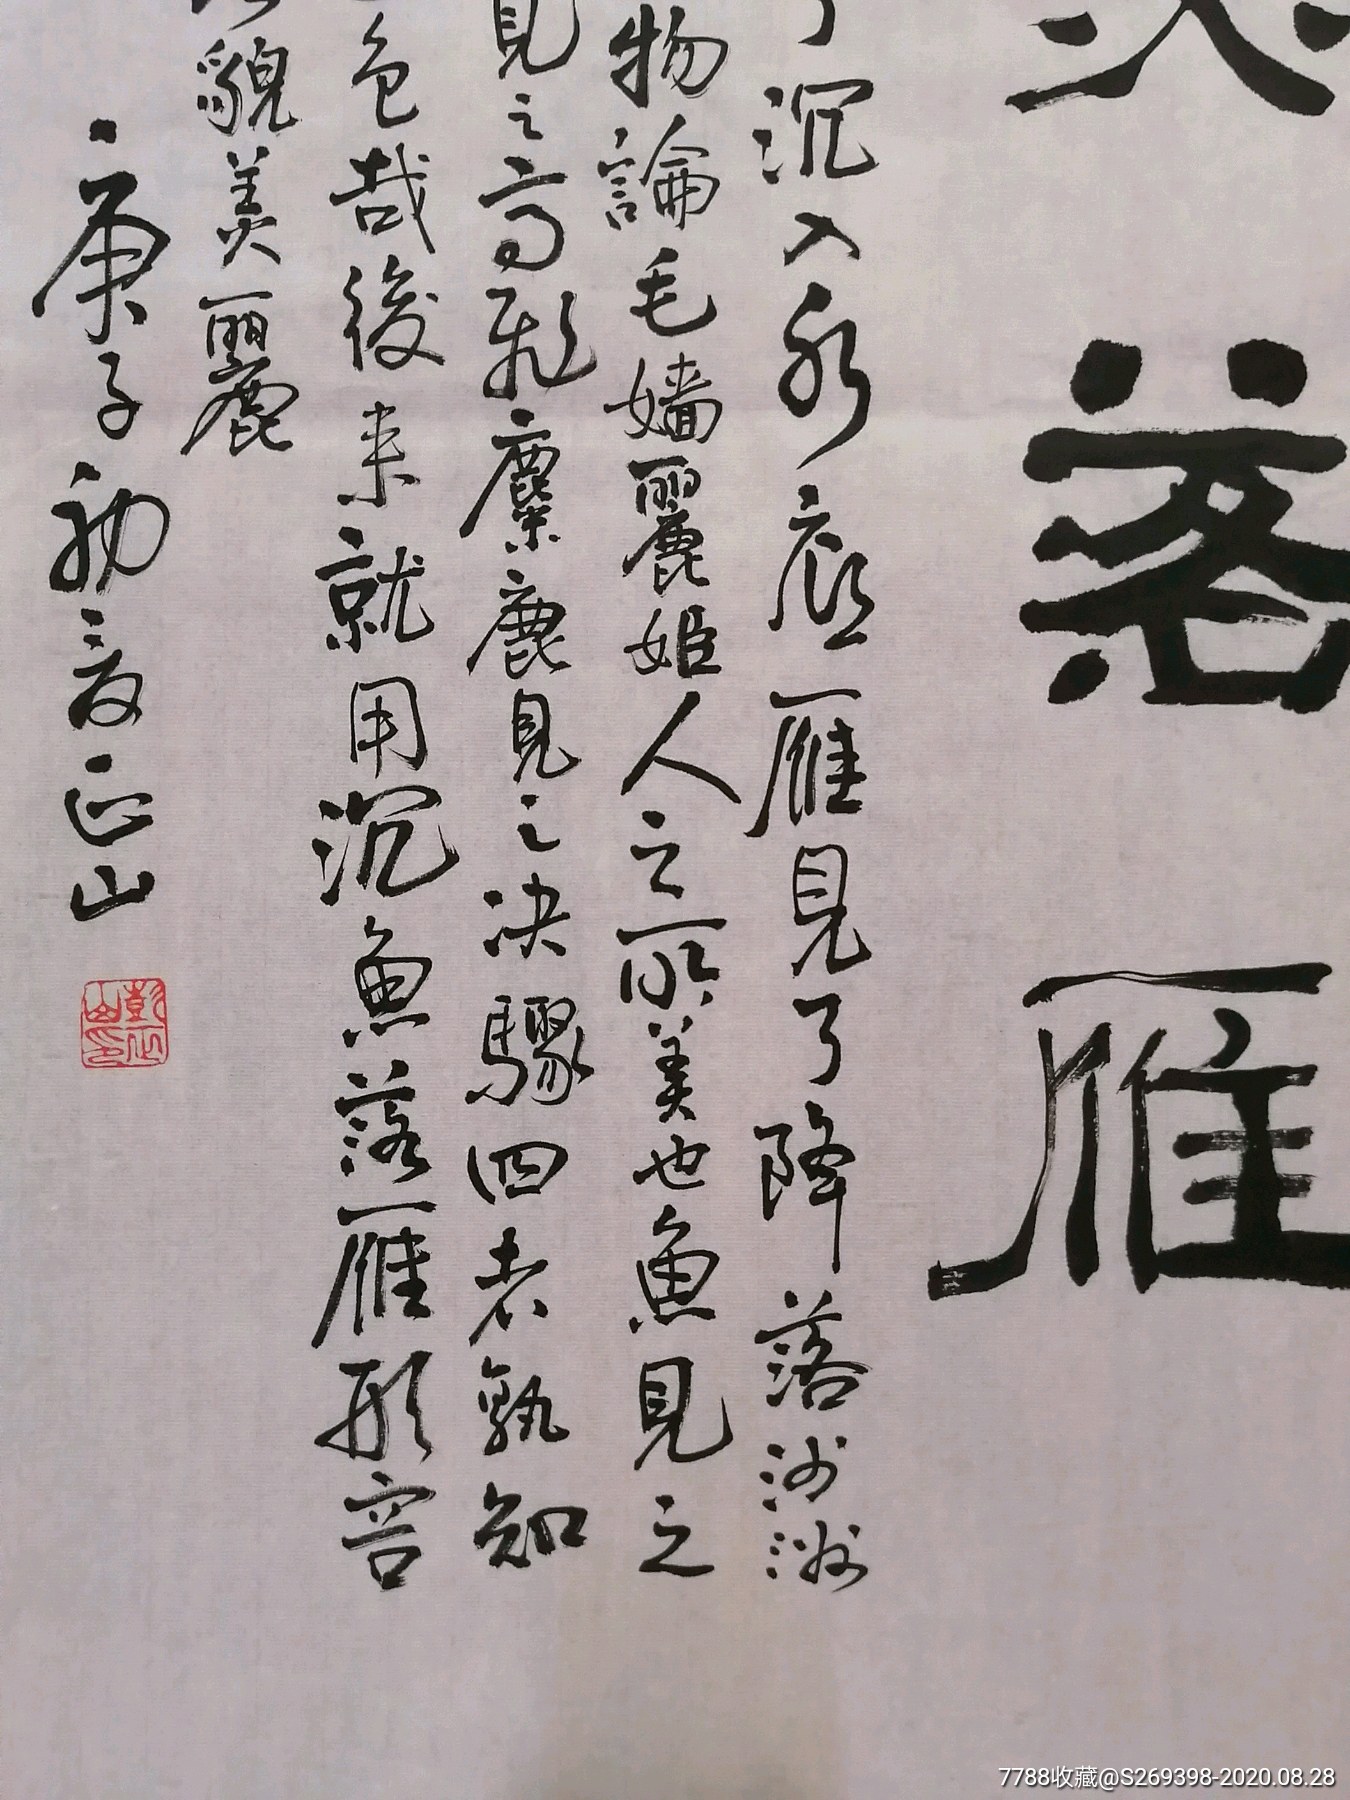 落雁
沉入水底雁見了降落沙洲
物論毛嬙麗姬人之所美也魚見之
見之高飛麋鹿見之决驟四者孰知
色哉後来就用沉魚落雁形容
貌美麗
庚子初夏正山
彭正山印
7788收藏@S269398-2020.08.28